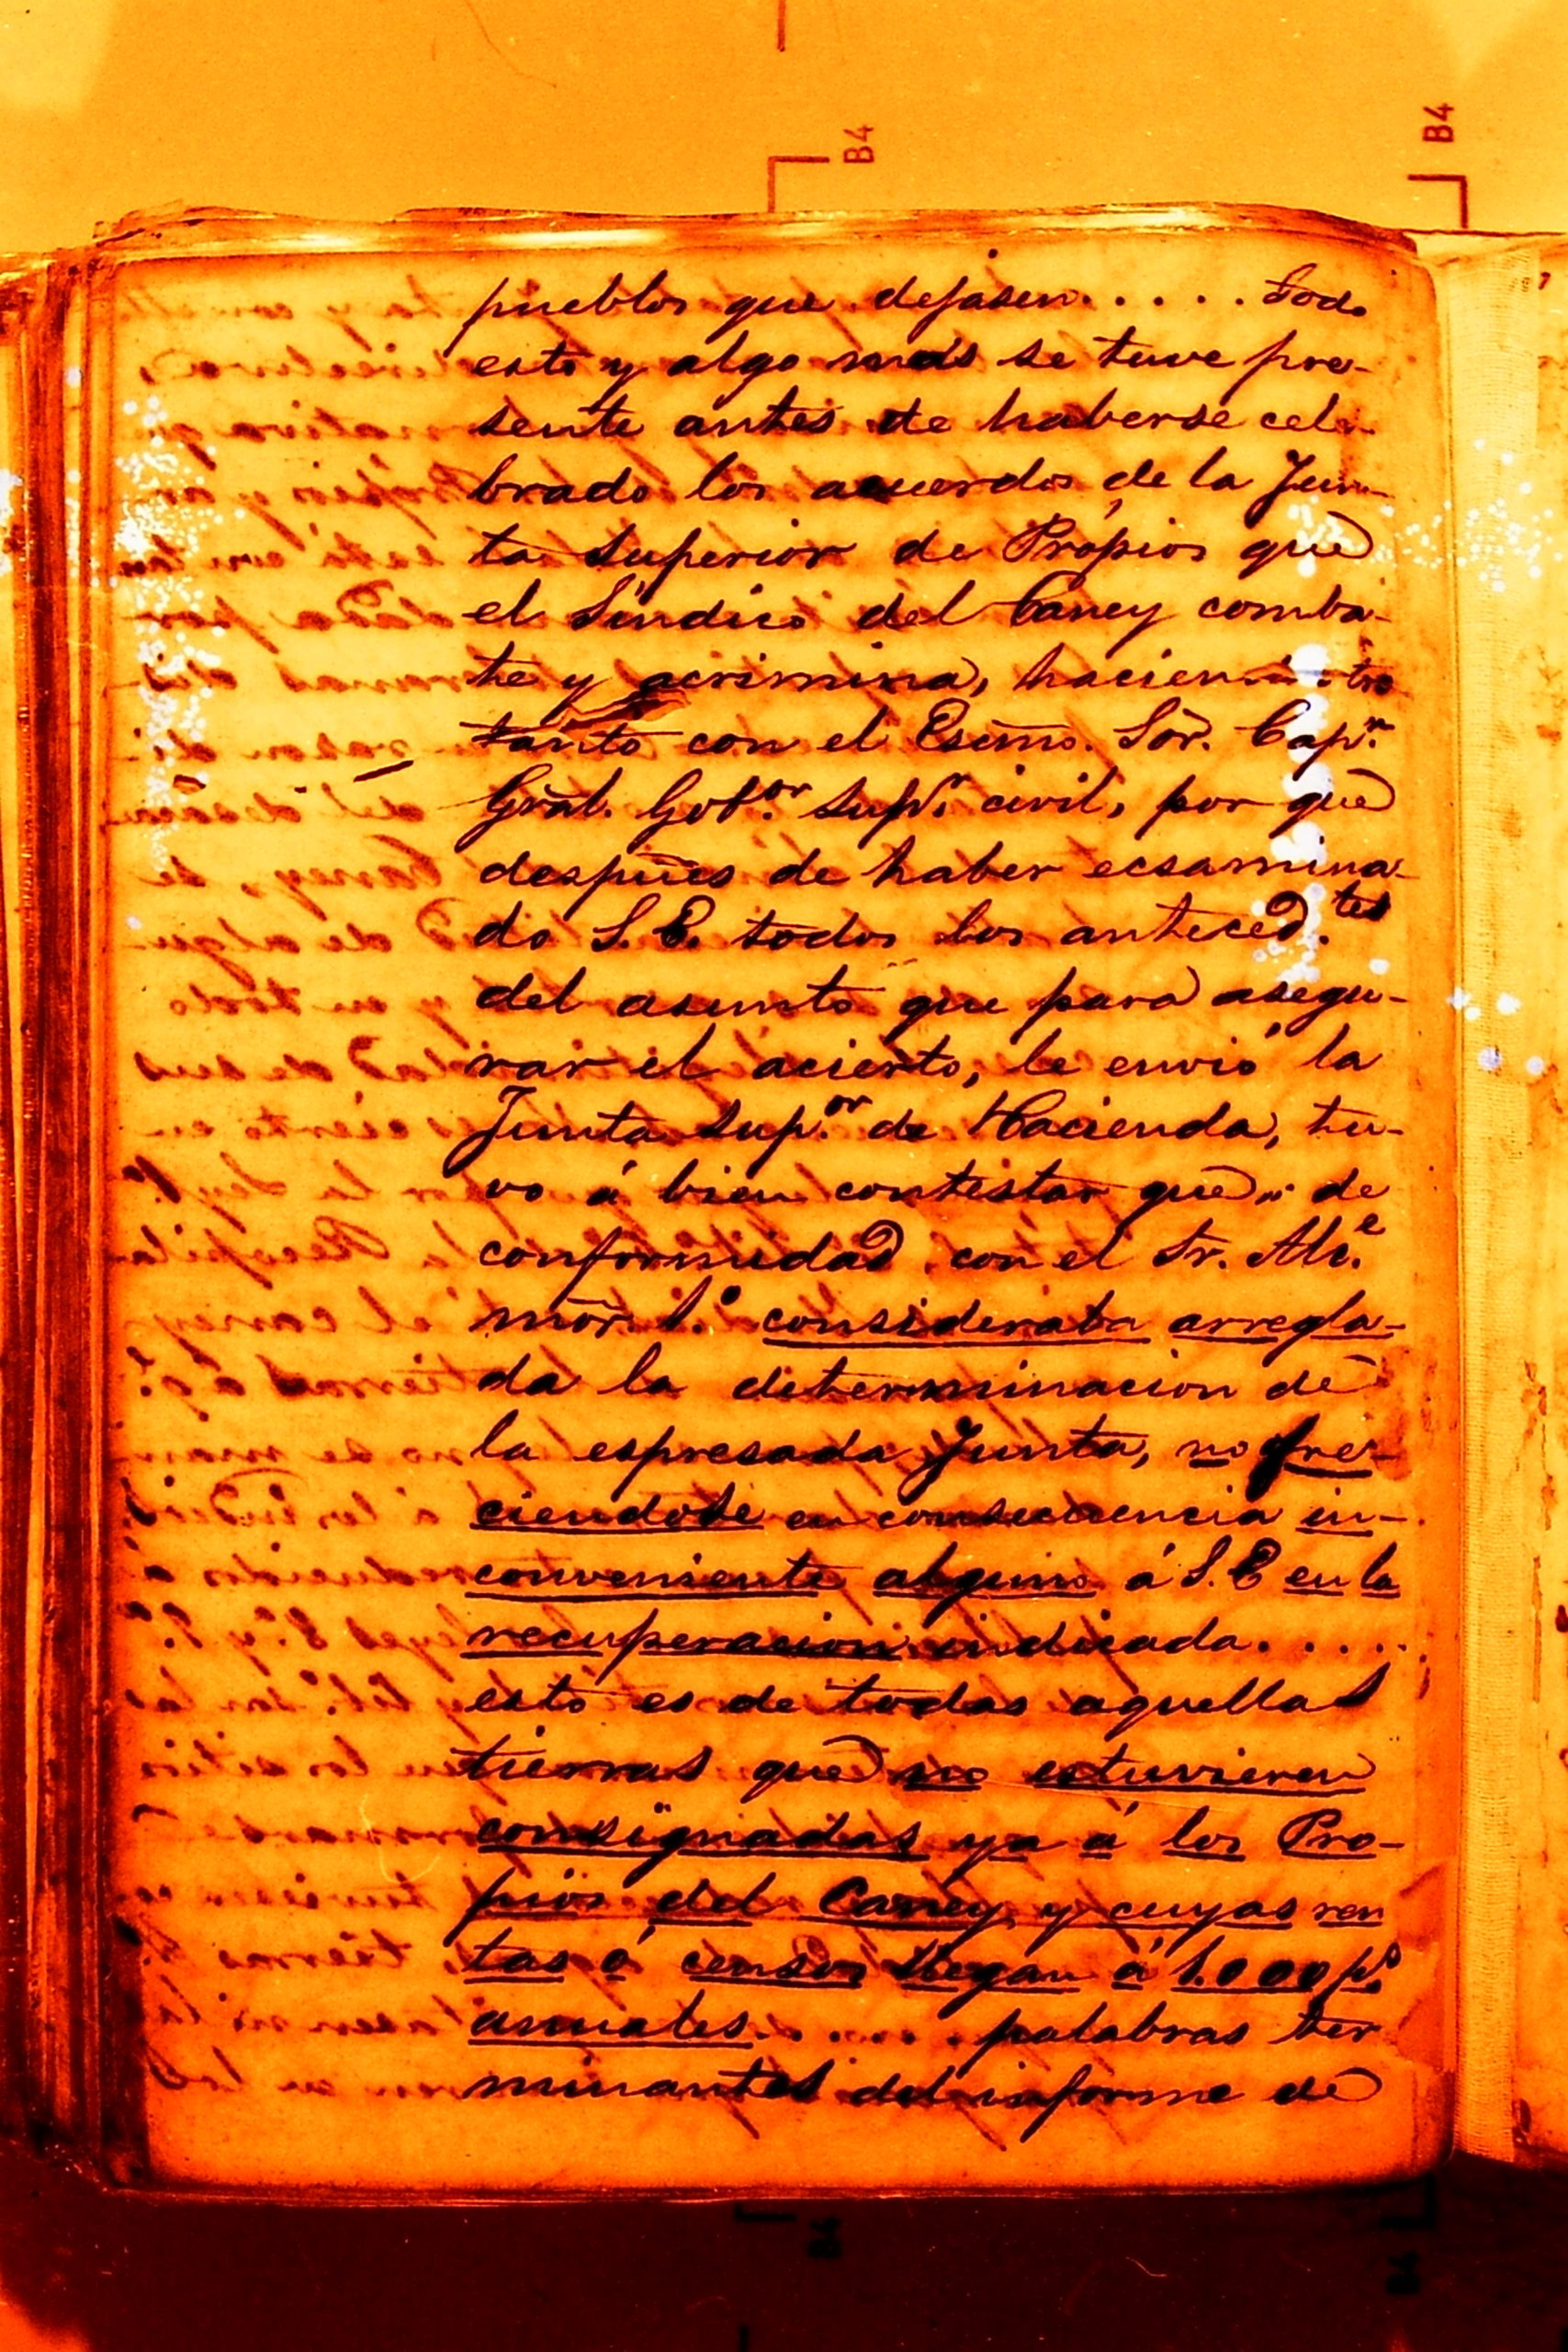 B4
B4
pueblos que dejasen. . . . . Todo
esto y algo más se tuvo pre-
sente antes de haberse cele-
brado los acuerdos de la Jun-
ta Superior de Própios que
el Síndico del Caney comba-
te y acrimina, otro
tanto con el Escmo. Sõr. Capn.
Gral. Gobor. Supr. civil, por que
despues de haber ecsamina-
do S. E. todos los antecedtes.
del asunto que para asegu-
rar el acierto, le envió la
Junta Supor. de Hacienda, tu-
vo á bien contestar que „ de
conformidad con el Sr. Alce.
mõr 1.º consideraba arregla-
da la determinacion de
la espresada Junta, no ofre-
ciendose en consecuencia in-
conveniente alguno á S. E en la
recuperacion indicada. . . . .
esto es de todas aquellas
tierras que no estuvieren
consignadas ya á los Pro-
pios del Caney y cuyas ren
tas ó censos llegan á 1.000 ps.
anuales. . . . . palabras ter
minantes del informe de
B4
B4